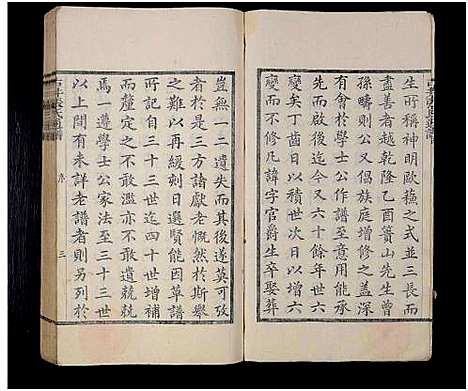 生所稱神明歐蘇之式並三長而
盡善者越乾隆乙酉簣山先生曾
孫疇則公又倡族庭增修之蓋深
有會於學士公作譜至意用能承
先而啟後迄今又六十餘年世六
變矣丁齒日以增四次日以積六
而不修凡諱字官爵生卒娶葬
豈無一二遺失而其後遂莫可攷
者於是三方諸獻老慨然於斯舉
之難以再緩刻日選賢能因草譜
所記自三十三世迄四十世增補
而釐定之不敢濫亦不敢遺兢兢
焉一遵學士公家法至三十三世
以上間有未詳老譜者則另列於
序
三